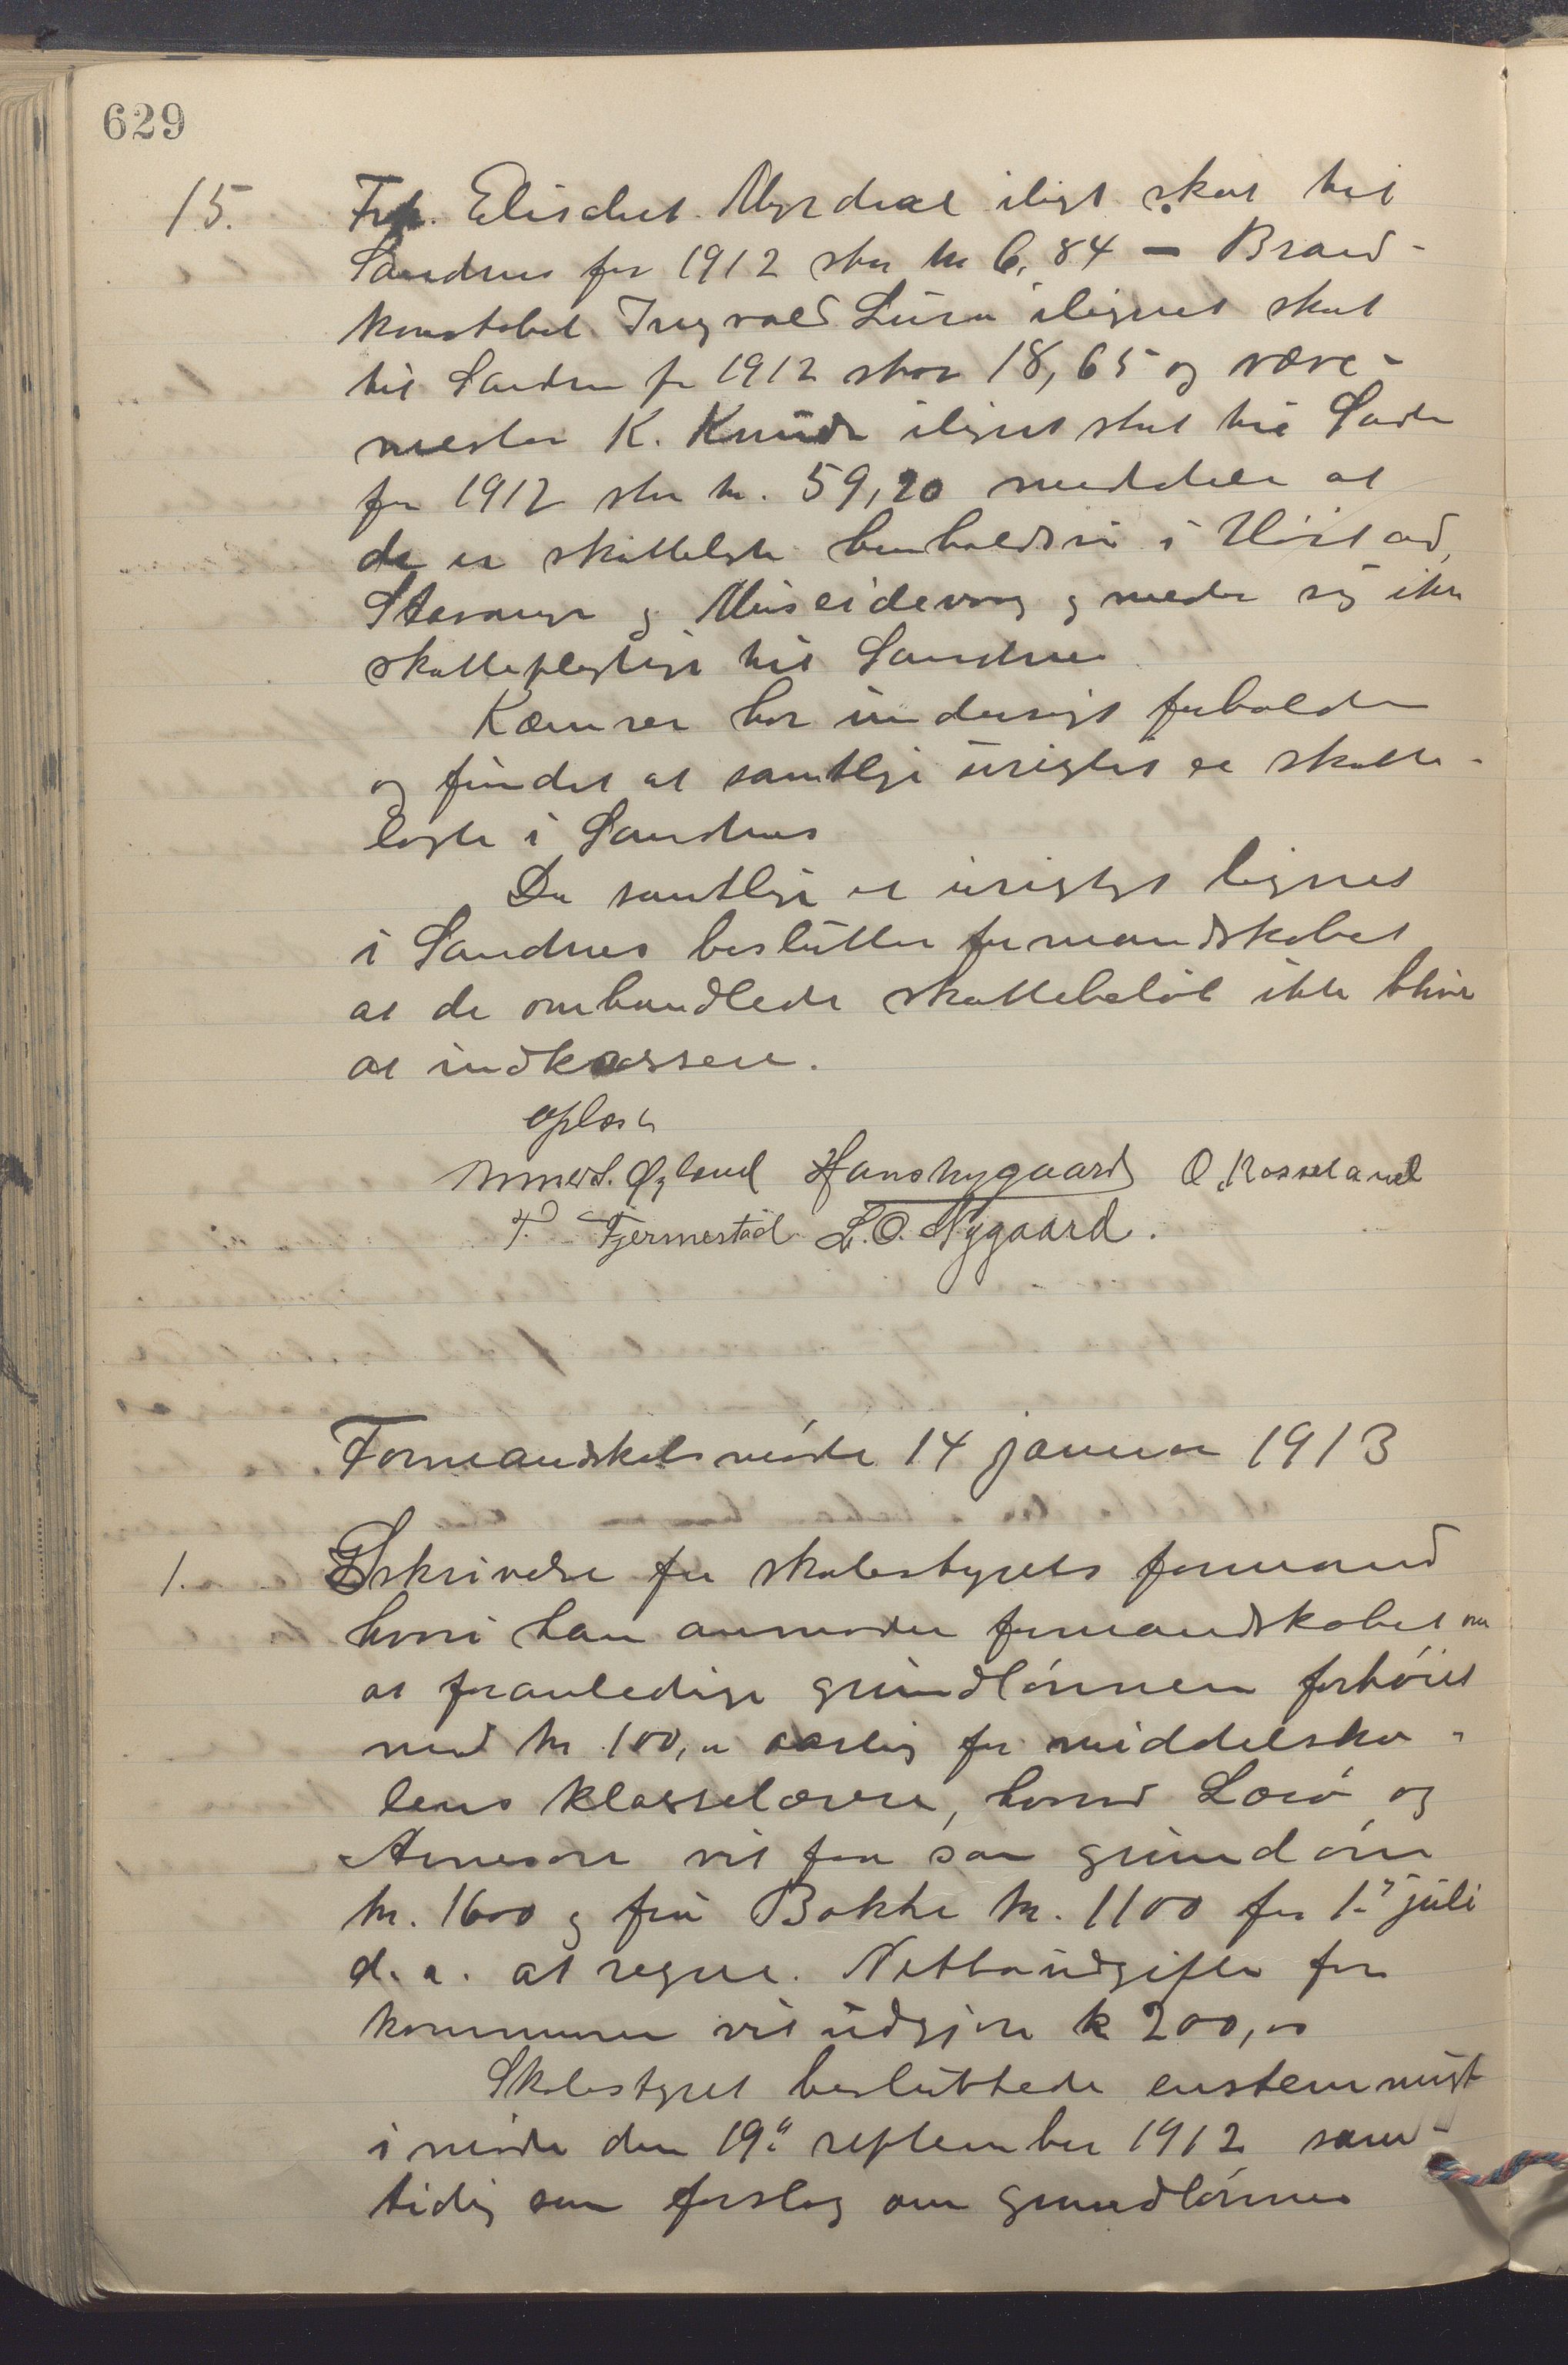 629
15. Frk. Elisabet Myrdal ilignt skat til
Sandnes for 1912 stor kr 6,84 – Brand-
konstabel Ingvald Lura ilignet skat
til Sandnes for 1912 stor 18,65 og væve-
mester K. Knuds ilignet skat til Sandn
for 1912 stor kr. 59,20 meddeler at
de er skattelagte henholdsvis i
Stavanger og og mener sig ikke
skattepligtige til Sandnes
Kæmner har undersøgt forholdene
og fundet at samtlige urigtig er skatte-
lagte i Sandnes
Da samtlige er urigtigt lignet
i Sandnes beslutter formandskabet
at de omhandlede skattebeløb ikke bliver
at indkassere.
oplæst
Øgland Hans Nygaard O. Rosseland
T. Fjermestad L. O. Nygaard.
Formandskabsmøde 14 januar 1913
1. Skrivelse fra skolestyrets formand
hvori han anmoder formandskabet om
at foranledige grundlønnen forhøiet
med kr 100,00 aarlig for middelsko-
lens klasselærere, hvorved Lærø og
Arnesen vil faa som grundløn
kr. 1600 og frú Bakke kr. 1100 fra 1ste juli
d.a. at regne. Nettoudgiften for
kommunen vil udgjøre kr 200,00
Skolestyret besluttede enstemmigt
i møde den 19de september 1912 sam-
tidig som forslag om grundlønnes